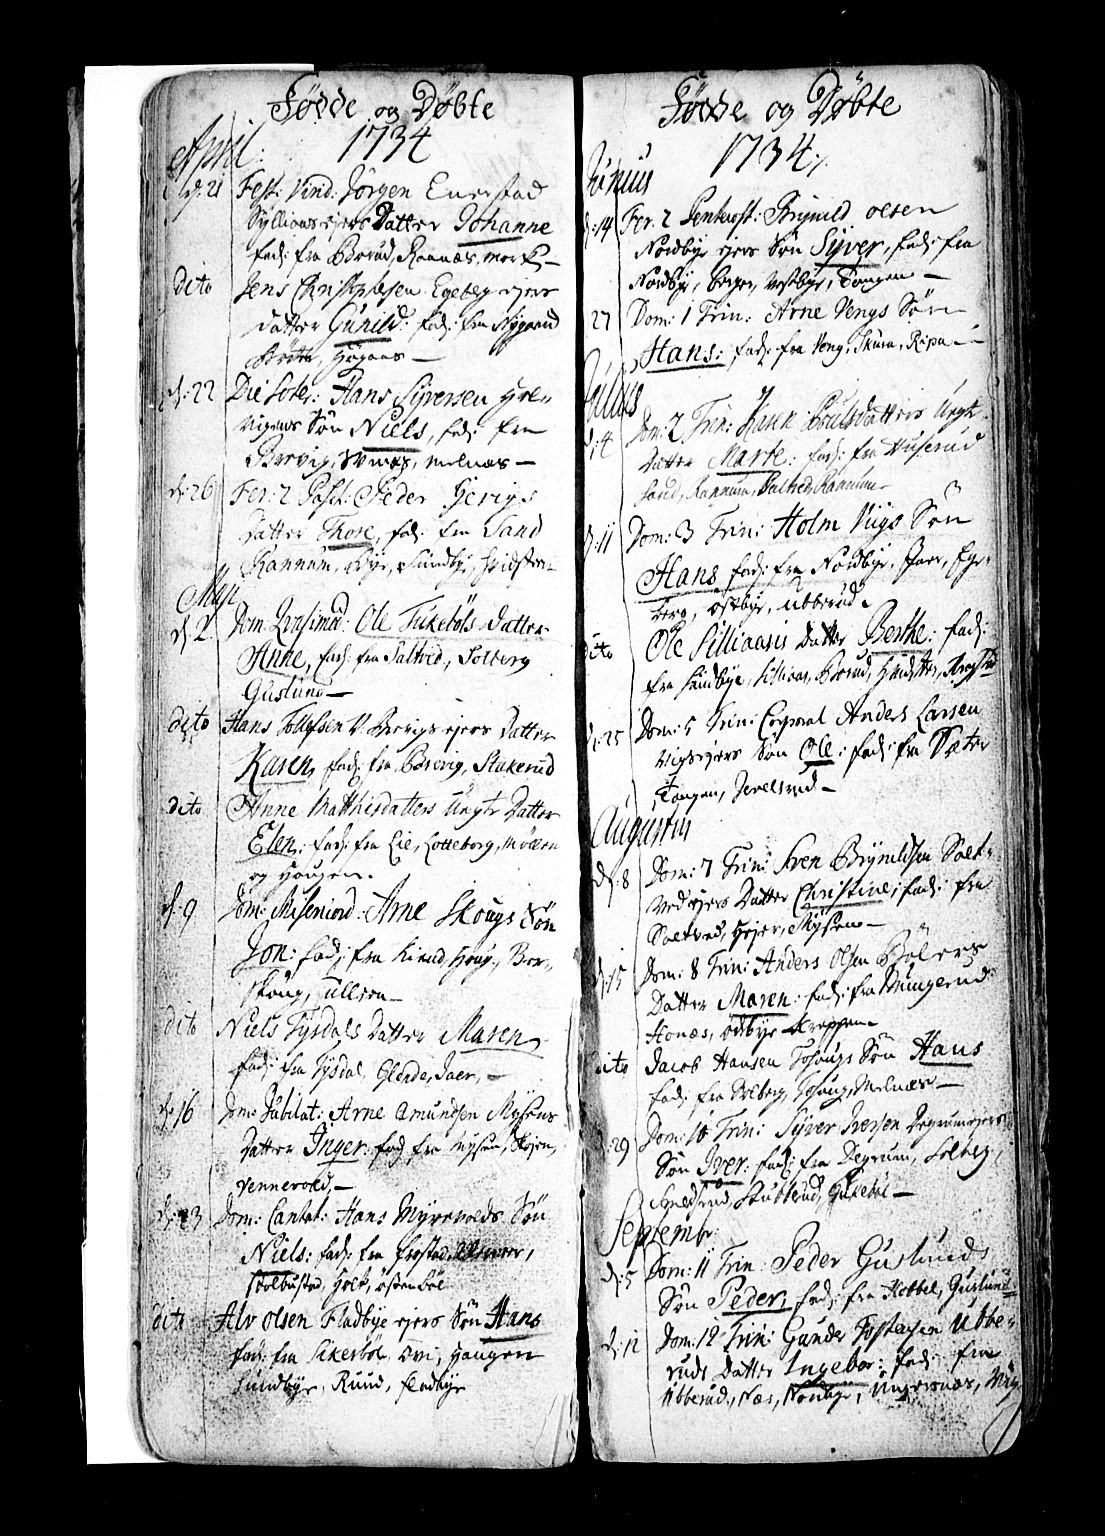 Fødde og Døbte
1734
April
d: 21 Fest: Vind: Jörgen Enerstad
Sylliaasejers Datter Johanne
fad: fra Borud, Rannæs, mork
dito Jens Christophersen Egebergejers
datter Gunild: fad: fra Nygaard
Bröten, Hougaas
d: 22 Die Solen: Hans Syversen Hol-
vigens Sön Niels, fad: fra
Brevig, melnæs
d: 26 Fer: 2 Pasch: Peder Hierigs
Datter Thore, fad: fra Sand
Rannum, Bye, Sundbye, Hvidsteen
Maji
d: 2 Dom Qvasimod: Ole Tukeböls datter
Anne, fad: fra Saltved, Solberg
Guslund
dito Hans Tollefsen V Brevigsejers Datter
Karen, fad: fra Brevig, Stakerud
dito Anne Mathisdatters Uægte Datter
Elen: fad: fra Lie, Lotteborg, Mölleren
og Hougen.
d: 9 Dom: Misericord: Arne Skougs Sön
Jon: fad: fra Kirud, Houg, Ber-
skoug, Ullern
dito Niels Tysdals Datter Maren
fad: fra Tysdal, Glende, Jaer,
d: 16 Dom: Jubilat: Arne Amundsen Mysens
Datter Inger: fad: fra Mysen, Hojen,
Vennerold,
d: 23 Dom: Cantat: Hans Myrevolds Sön
Niels: fad: fra frostad,
Skolbustad, Holt, östenböl
dito Alv Olsen Fladbye ejers Sön Hans
fad: fra Sikerböl, Ovi, Haugen
Sundbye, Ruud, fladbye
Fødde og Døbte
1734
Junius
d: 14 Fer: 2 Pentecost: Brynild olsen
Nordbye ejers Sön Syver, fad: fra
Nordbye, Berger, Vestbye, Tangen
27 Dom: 1 Trin: Arne Vengs Sön
Hans: fad: fra Veng, Skuun, Ripa
Julius
d: 4 Dom: 2 Trin: Karen Poulsdatters Uægte
Datter Marte: fad: fra Huserud
Sand, Rannum, Saltved, Rannum
d: 11 Dom: 3 Trin: Holm Viigs Sön
Hans fad: fra Nordbye, Huer, Ege-
berg, östbye, ubberud.
dito Ole Silliaasis Datter Berthe: fad:
fra Sundbye, Silliaas, Borud, Hvidsten, Krogstad
d: 25 Dom: 5 Trin: Corporal Anders Larsen
Vigsejers Sön Ole: fad: fra Sæter
Tangen, Jevelsrud
Augustus
d: 8 Dom: 7 Trin: Sven Brynildsen Salt-
vedejers Datter Christine; fad: fra
Saltved, Hojer, Mysen
d: 15 Dom: 8 Trin: Anders Olsen Bölers
Datter Maren: fad: fra Mungerud
Honæs, Odbye Kroppen
dito Jacob Hansen Tohougs Sön Hans
fad: fra Solberg, Tohoug, Melnæs
d: 29 Dom: 10 Trin: Syver Iversen Degrumejers
Sön Iver: fad: fra Degrum, Solberg,
Spildsrud, Stubberud, Gukeböl
Septembr:
d: 5 Dom: 11 Trin: Peder Guslunds
Sön Peder, fad: fra Hebbel, Guslund
d: 12 Dom: 12 Trin: Gunder Tostensen Ubbe-
ruds Datter Ingebor: fad: fra
Ubberud, Næs, Nordbye, Ungersnæs, Viig